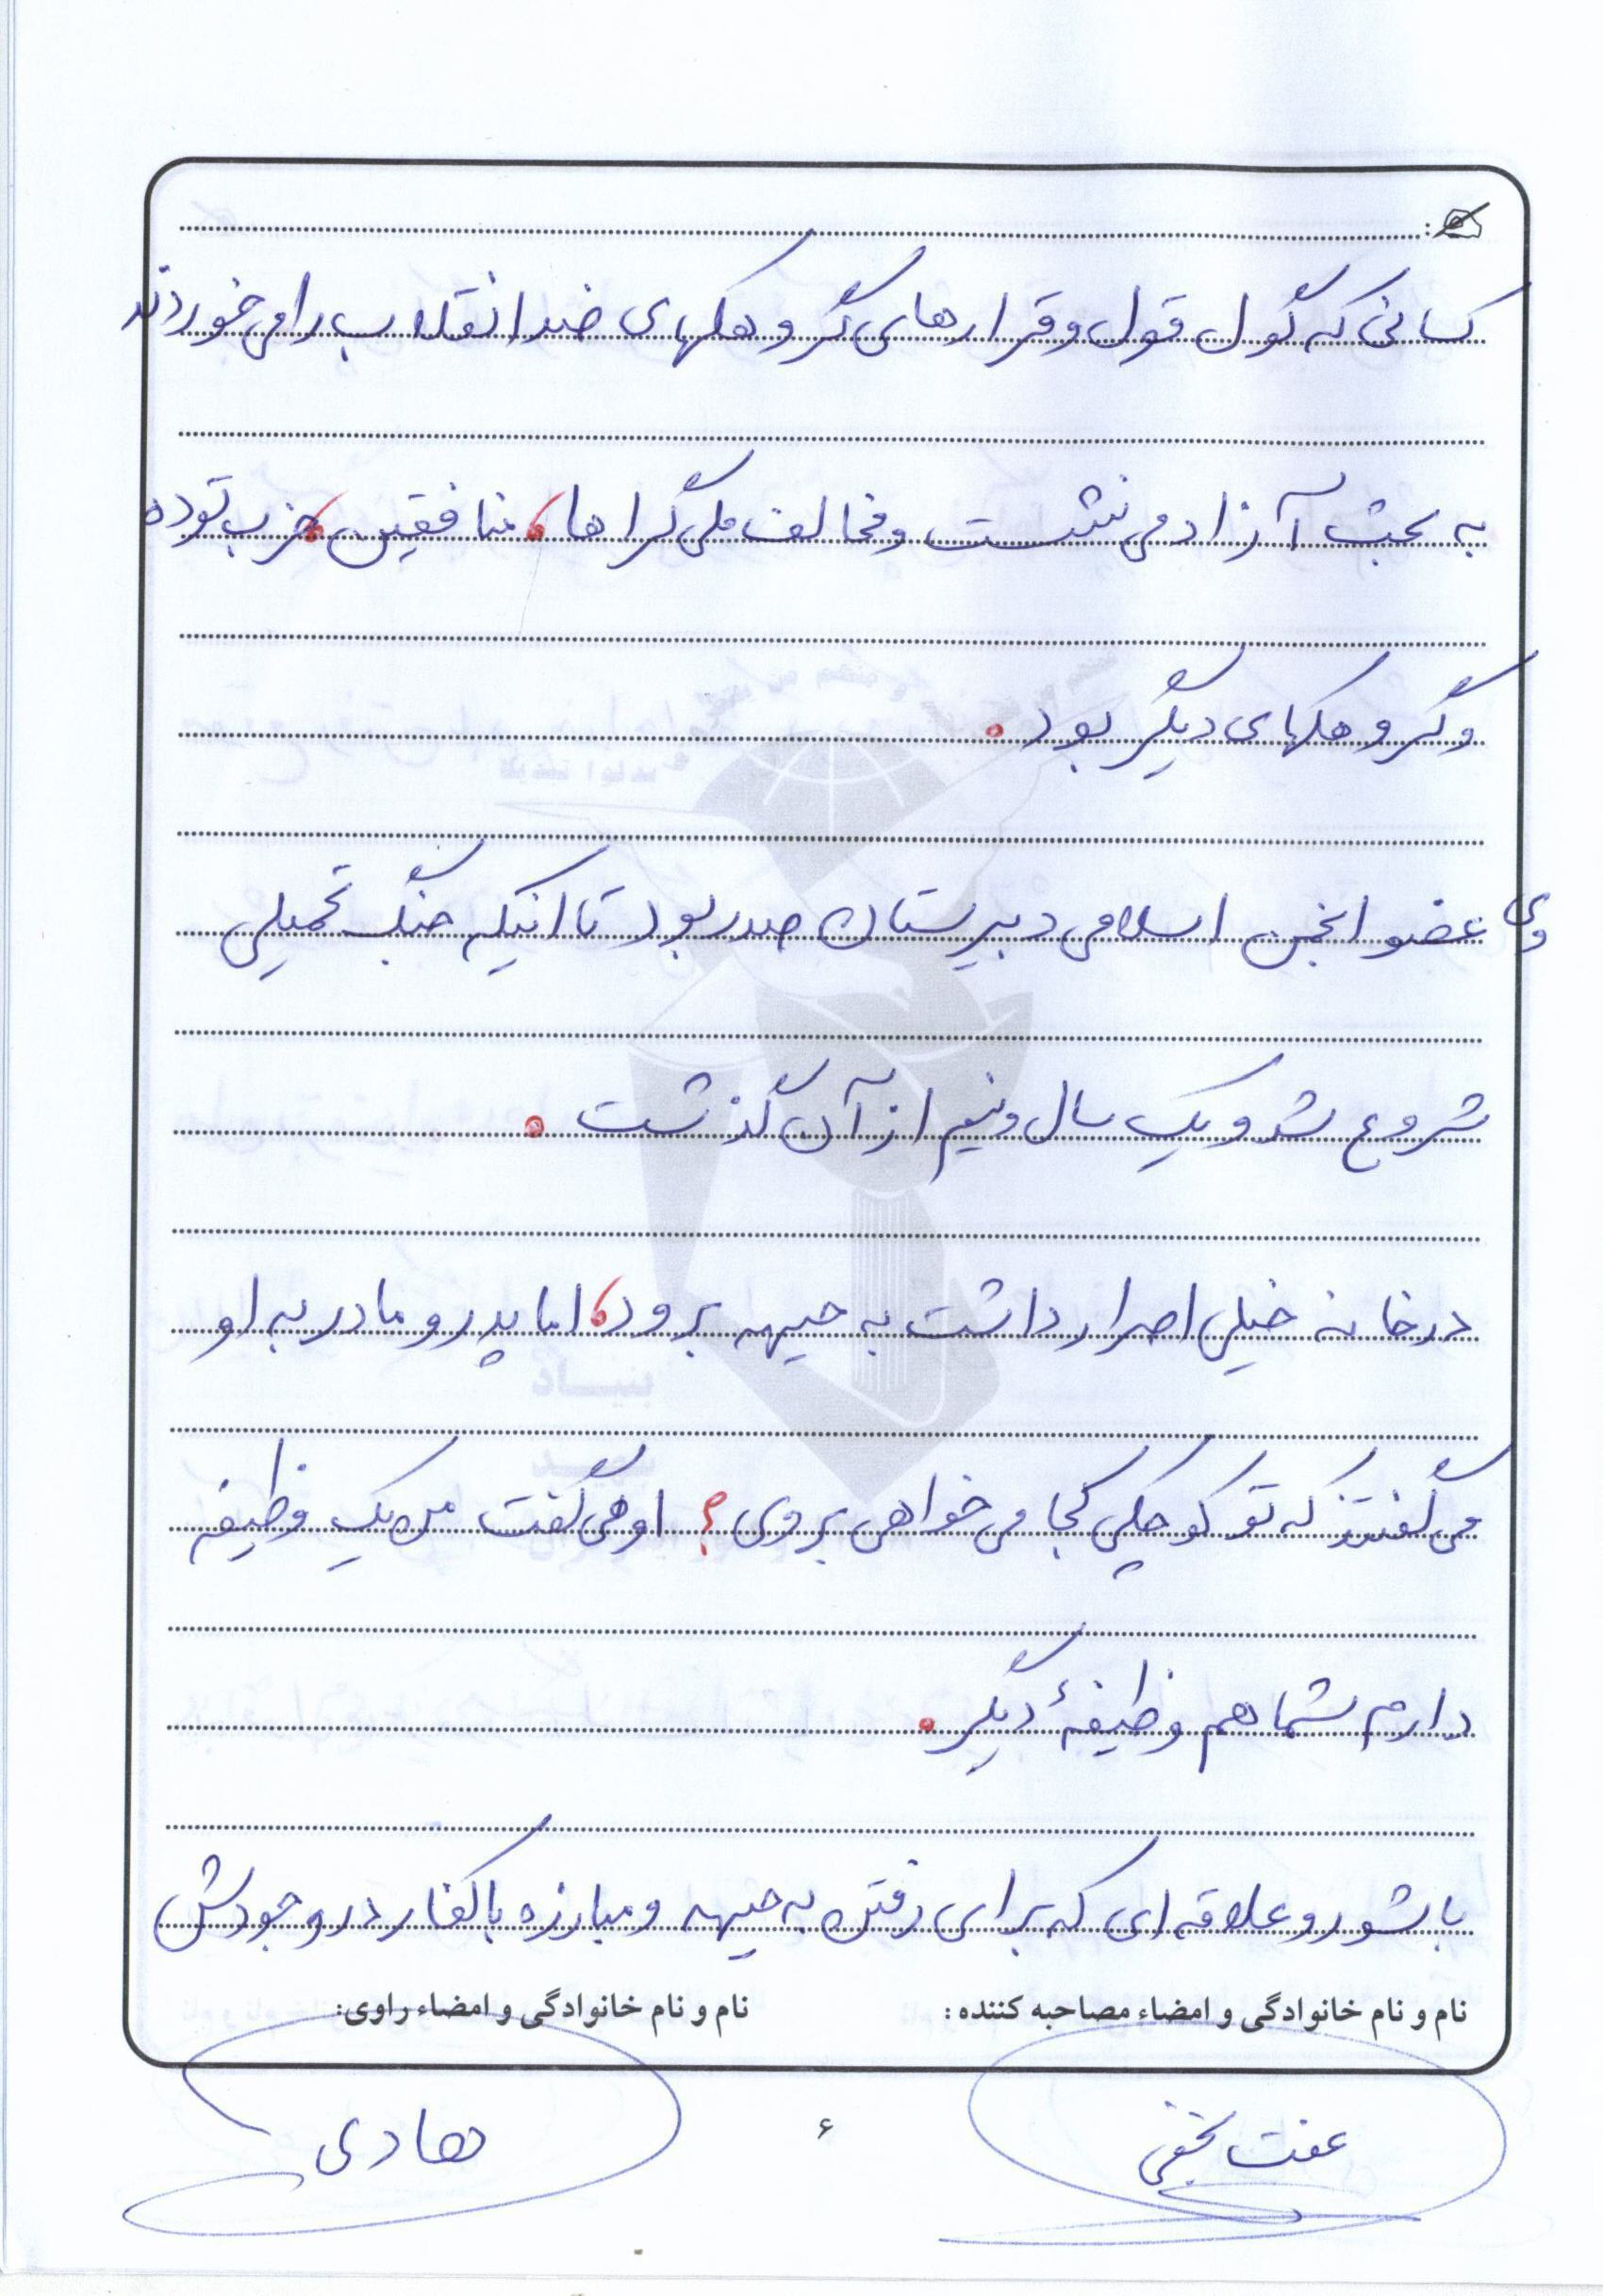 کسانی که گول قول و قرارهای گروهکهای ضد انقلاب را می خوردند
به بحث آزاد می نشست و مخالف ملی گراها، منافقین، حزب توده
و گروهکهای دیگر بود.
وی عضو انجمن اسلامی دبیرستان صدر بود تا اینکه جنگ تحمیلی
شروع شد و یک سال و نیم از آن گذشت.
در خانه خیلی اصرار داشت به جبهه برود، اما پدر و مادر به او
می گفتند که تو کوچکی کجا می خواهی بروی؟ او می گفت من یک وظیفه
دارم شما هم وظیفهٔ دیگر.
با شور و علاقه ای که برای رفتن به جبهه و مبارزه با کفار در وجودش
نام و نام خانوادگی و امضاء مصاحبه کننده: نام و نام خانوادگی و امضاء راوی:
عفت نجفی ۶ هادی